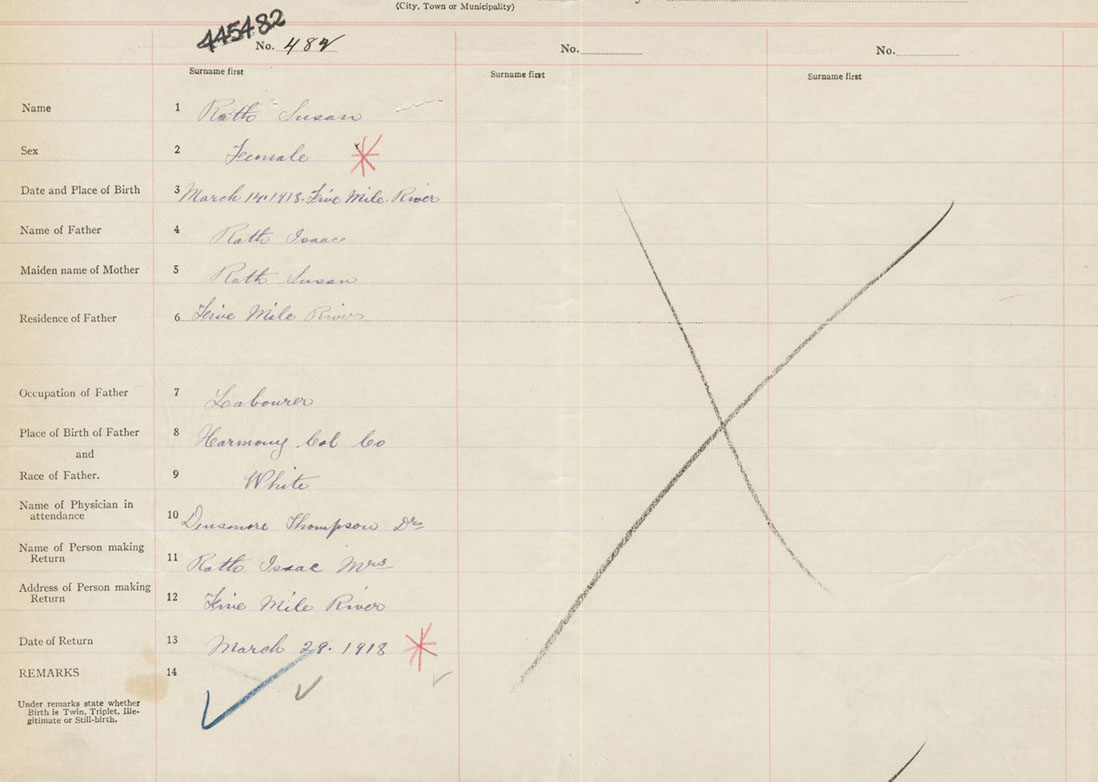 (City, Town or Municipality)
445482
No. 482
No.
No.
Surname first
Surname first
Surname first
Name 1 Rath Susan
Sex 2 Female
Date and Place of Birth 3 March 14. 1918. Five Mile River
Name of Father 4 Rath Isaac
Maiden name of Mother 5 Rath Susan
Residence of Father 6 Five Mile River
Occupation of Father 7 Labourer
Place of Birth of Father 8 Harmony Col Co
and
Race of Father. 9 White
Name of Physician in
attendance 10 Densmore Thompson Drs
Name of Person making
Return 11 Rath Isaac Mrs
Address of Person making
Return 12 Five Mile River
Date of Return 13 March 29. 1918
REMARKS 14
Under remarks state whether
Birth is Twin, Triplet, Ille-
gitimate or Still-birth.